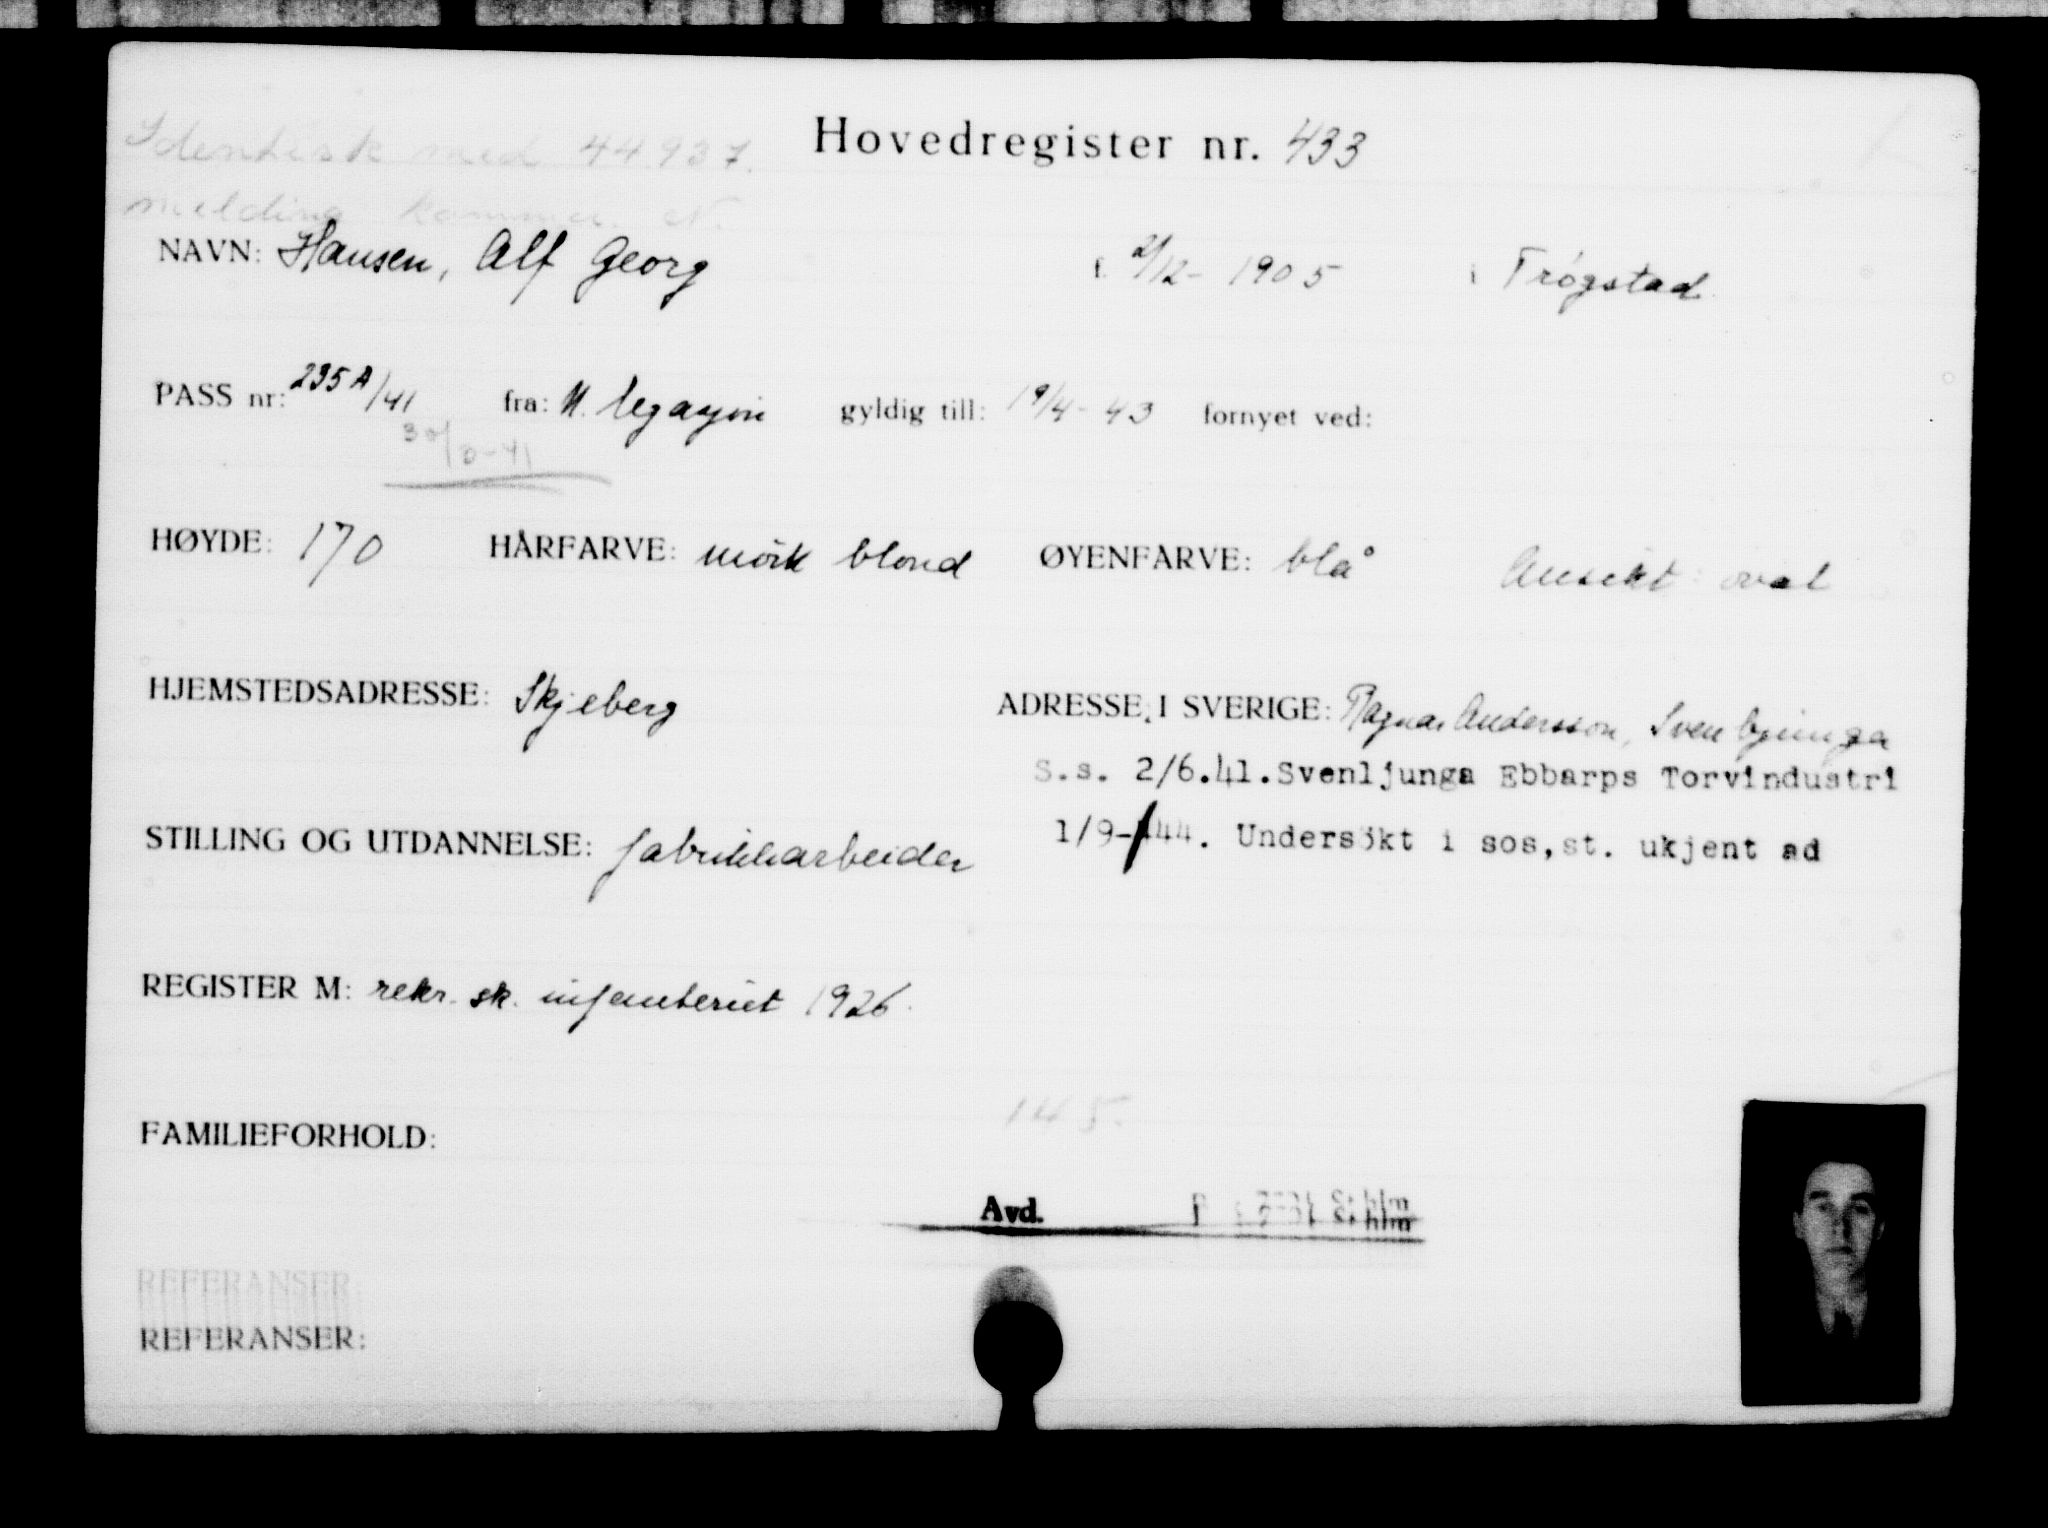 Identisk med 44937. Hovedregister nr. 433
melding kommer
NAVN: Hansen, Alf Georg f. 2/12- 1905 i Trøgstad
PASS nr: 235A/41 fra: N. legasjon gyldig till: 19/4-43 fornyet ved:
HØYDE: 170 HÅRFARVE: mörk blond ØYENFARVE: blå Ansikt: oval
HJEMSTEDSADRESSE: Skjeberg ADRESSE I SVERIGE: Ragnar Andersson,
S.s. 2/6.41.Svenljunga Ebbarps Torvindustri
STILLING OG UTDANNELSE: fabrikkarbeider 1/9-44. Undersökt i sos,st. ukjent ad
REGISTER M: rekr. sk. infanteriet 1926.
FAMILIEFORHOLD: 145.
Avd.
REFERANSER
REFERANSER: